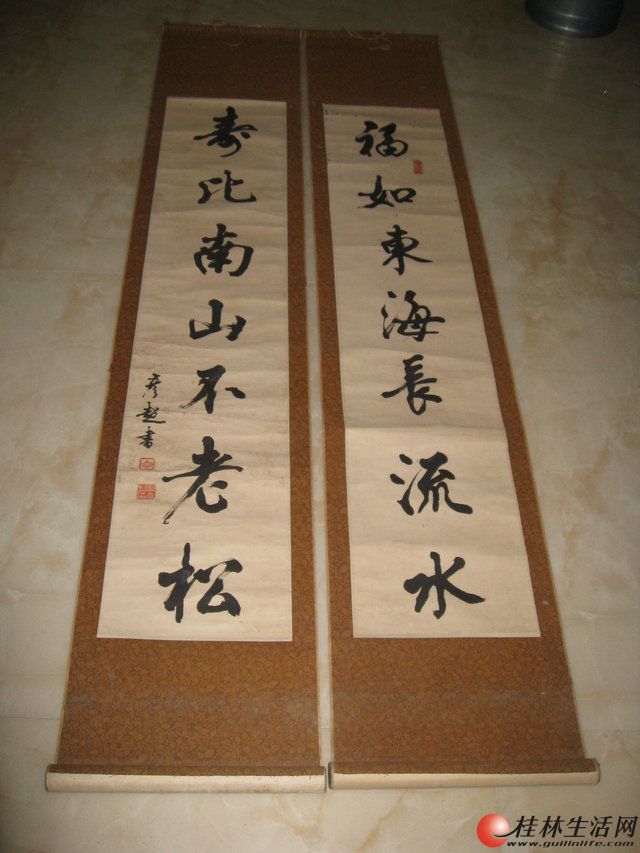 福如東海長流水
壽比南山不老松
彦超書
桂林生活网
www.guilinlife.com